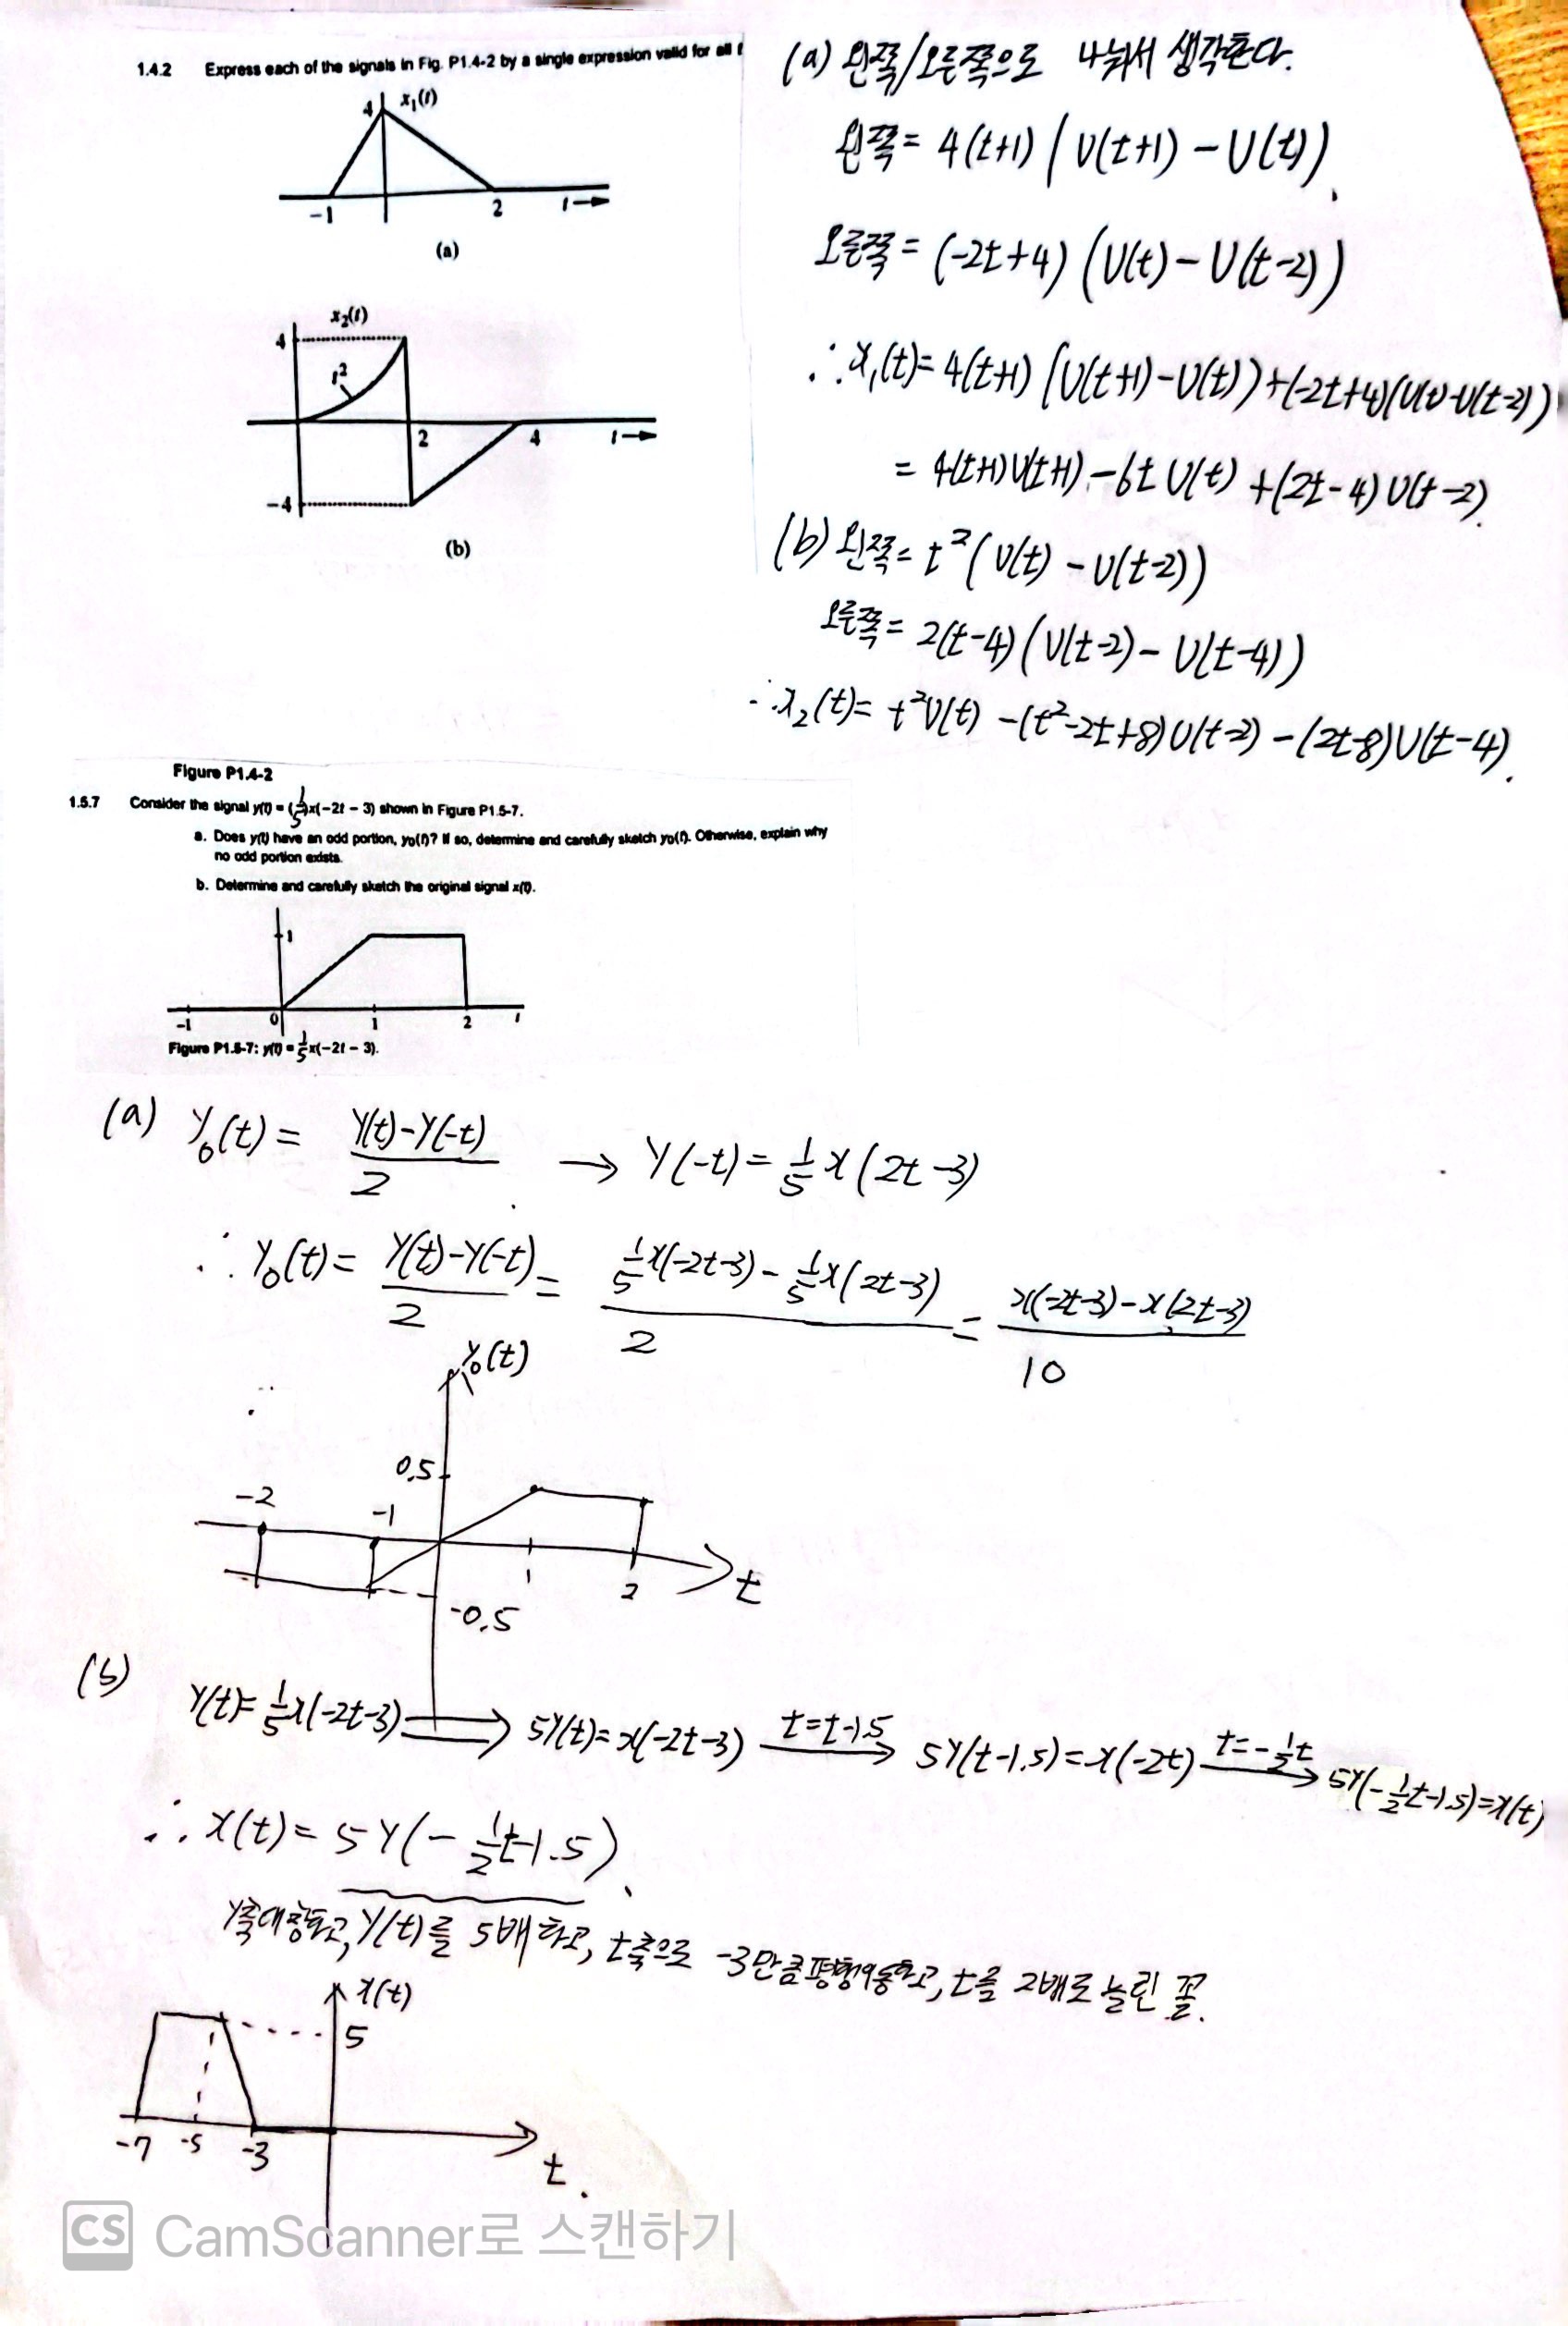 1.4.2 Express each of the signals in Fig. P1.4-2 by a single expression valid for all t
4 x₁(t)
-1 2 t→
(a)
x₂(t)
4
t²
2 4 t→
-4
(b)
Figure P1.4-2
(a) 왼쪽/오른쪽으로 나눠서 생각한다.
왼쪽 = 4(t+1) (U(t+1) - U(t)).
오른쪽 = (-2t+4) (U(t) - U(t-2))
∴ x₁(t) = 4(t+1) (U(t+1)-U(t)) + (-2t+4)(U(t)-U(t-2))
= 4(t+1)U(t+1) - 6t U(t) + (2t-4) U(t-2).
(b) 왼쪽 = t² (U(t) - U(t-2))
오른쪽 = 2(t-4) (U(t-2) - U(t-4))
∴ x₂(t) = t²U(t) - (t²-2t+8)U(t-2) - (2t-8)U(t-4).
1.5.7 Consider the signal y(t) = (1/5)x(-2t - 3) shown in Figure P1.5-7.
a. Does y(t) have an odd portion, y₀(t)? If so, determine and carefully sketch y₀(t). Otherwise, explain why
no odd portion exists.
b. Determine and carefully sketch the original signal x(t).
1
-1 0 1 2 t
Figure P1.5-7: y(t) = 1/5 x(-2t - 3).
(a) Y₀(t) = Y(t)-Y(-t) / 2 → Y(-t) = 1/5 x(2t-3)
∴ Y₀(t) = Y(t)-Y(-t) / 2 = 1/5 x(-2t-3) - 1/5 x(2t-3) / 2 = x(-2t-3) - x(2t-3) / 10
Y₀(t)
0.5
-2 -1
1 2 t
-0.5
(b)
Y(t) = 1/5 x(-2t-3) ⇒ 5Y(t) = x(-2t-3) t=t-1.5 → 5Y(t-1.5) = x(-2t) t=-1/2t → 5Y(-1/2t-1.5) = x(t)
∴ x(t) = 5Y(-1/2t-1.5).
Y축대칭하고, Y(t)를 5배하고, t축으로 -3만큼평행이동하고, t를 2배로 늘린 꼴.
x(t)
5
-7 -5 -3 t.
CS CamScanner로 스캔하기